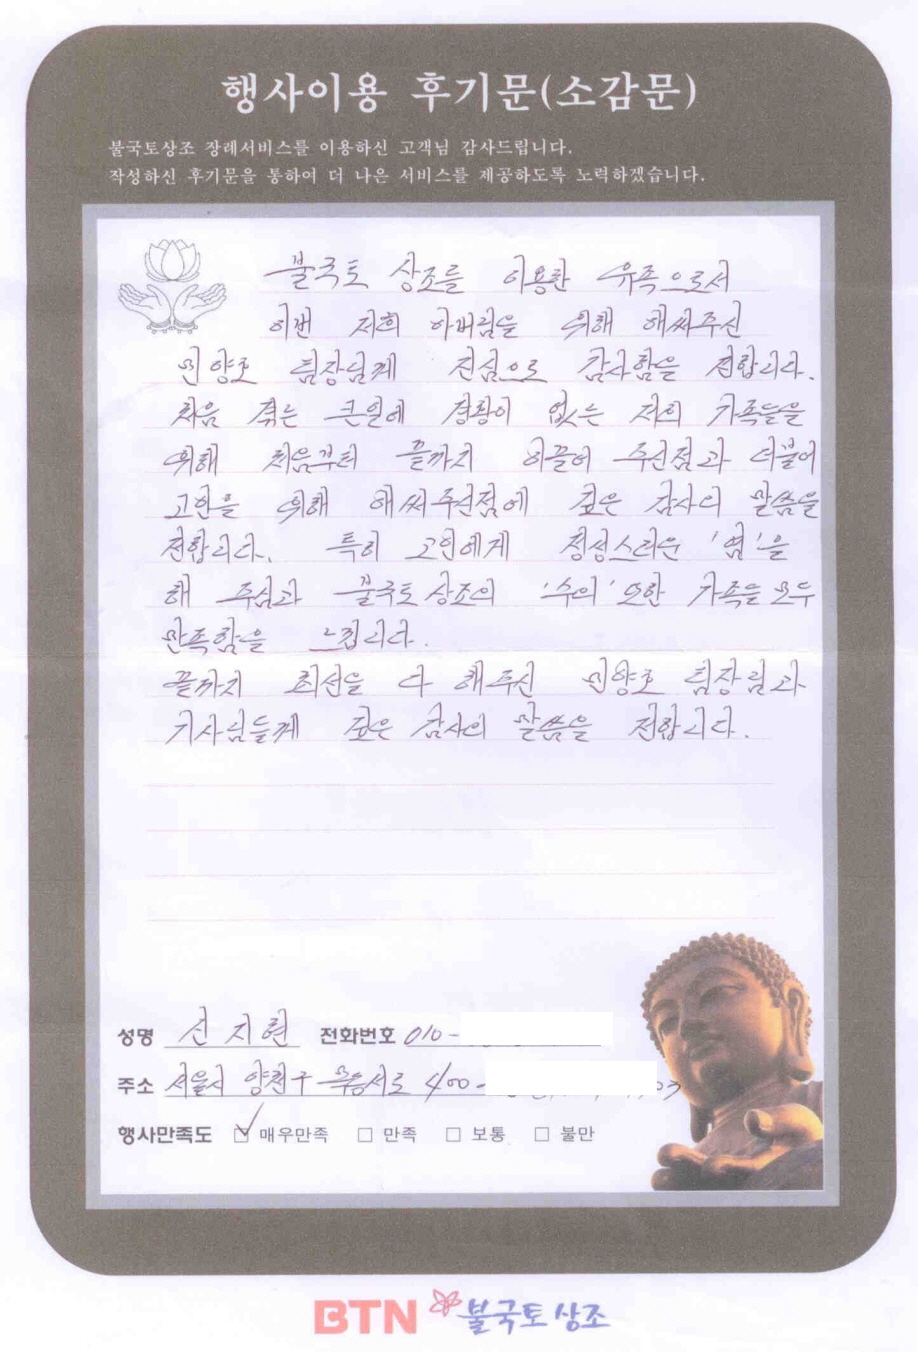 행사이용 후기문(소감문)
불국토상조 장례서비스를 이용하신 고객님 감사드립니다.
작성하신 후기문을 통하여 더 나은 서비스를 제공하도록 노력하겠습니다.
불국토 상조를 이용한 유족으로서
이번 저희 아버님을 위해 애써주신
민양호 팀장님께 진심으로 감사함을 전합니다.
처음 겪는 큰일에 경황이 없는 저의 가족들을
위해 처음부터 끝까지 이끌어 주신점과 더불어
고인을 위해 애써주신점에 깊은 감사의 말씀을
전합니다. 특히 고인에게 정성스러운 '염'을
해 주심과 불국토상조의 '수의' 또한 가족들 모두
만족함을 느낍니다.
끝까지 최선을 다 해주신 민양호 팀장님과
기사님들께 깊은 감사의 말씀을 전합니다.
성명 신지현 전화번호 010-
주소 서울시 양천구 목동서로 400-
행사만족도 ☑ 매우만족 □ 만족 □ 보통 □ 불만
BTN 불국토상조